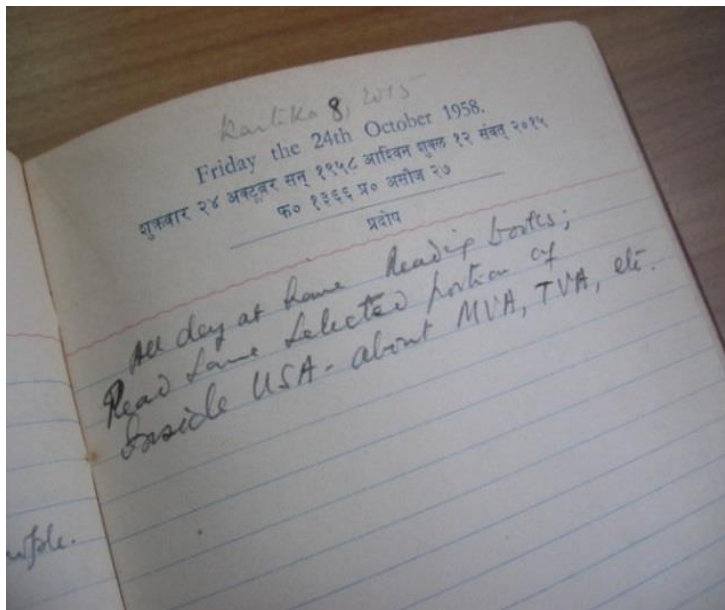 Kartika 8, 2015
Friday the 24th October 1958.
शुक्रवार २४ अक्टूबर सन् १९५८ आश्विन शुक्ल १२ संवत् २०१५
फ० १३६६ प्र० असौज २७
प्रदोष
All day at home Reading books;
Read some selected portion of
Inside USA - about MVA, TVA, etc.